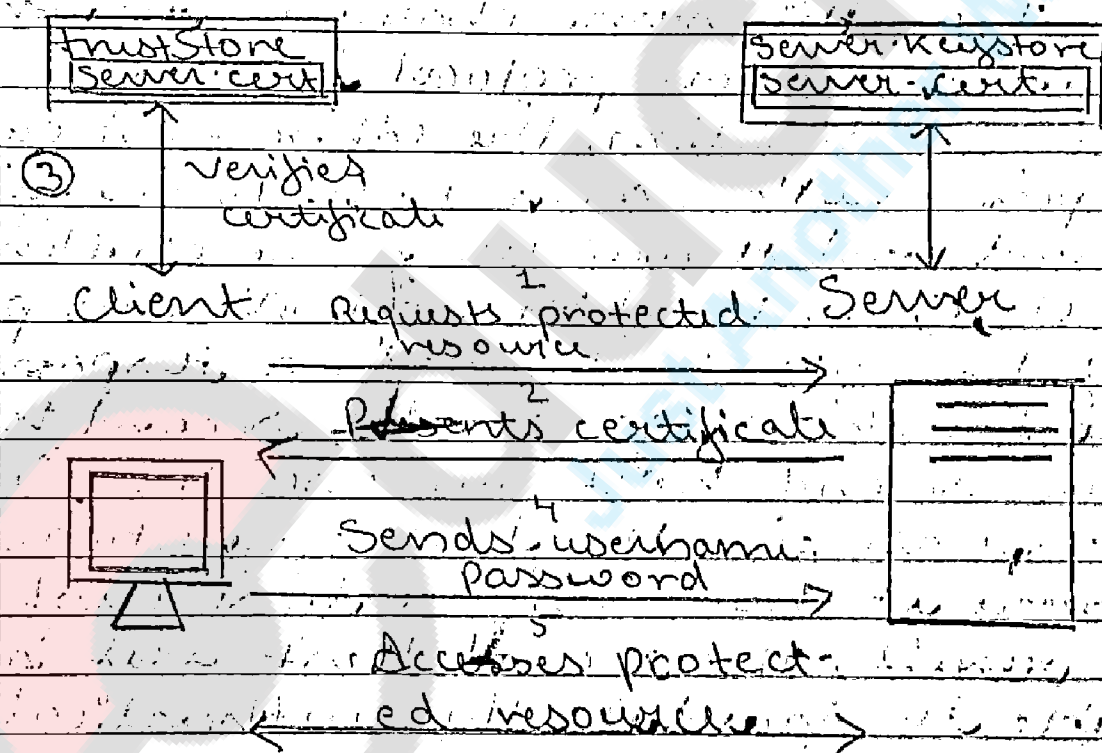 trustStore
server.cert
server.keystore
server.cert
③ verifies
certificate
Client
Server
1
Requests protected
resource
2
Presents certificate
4
Sends username
password
5
Accesses protect-
ed resource
Just Another